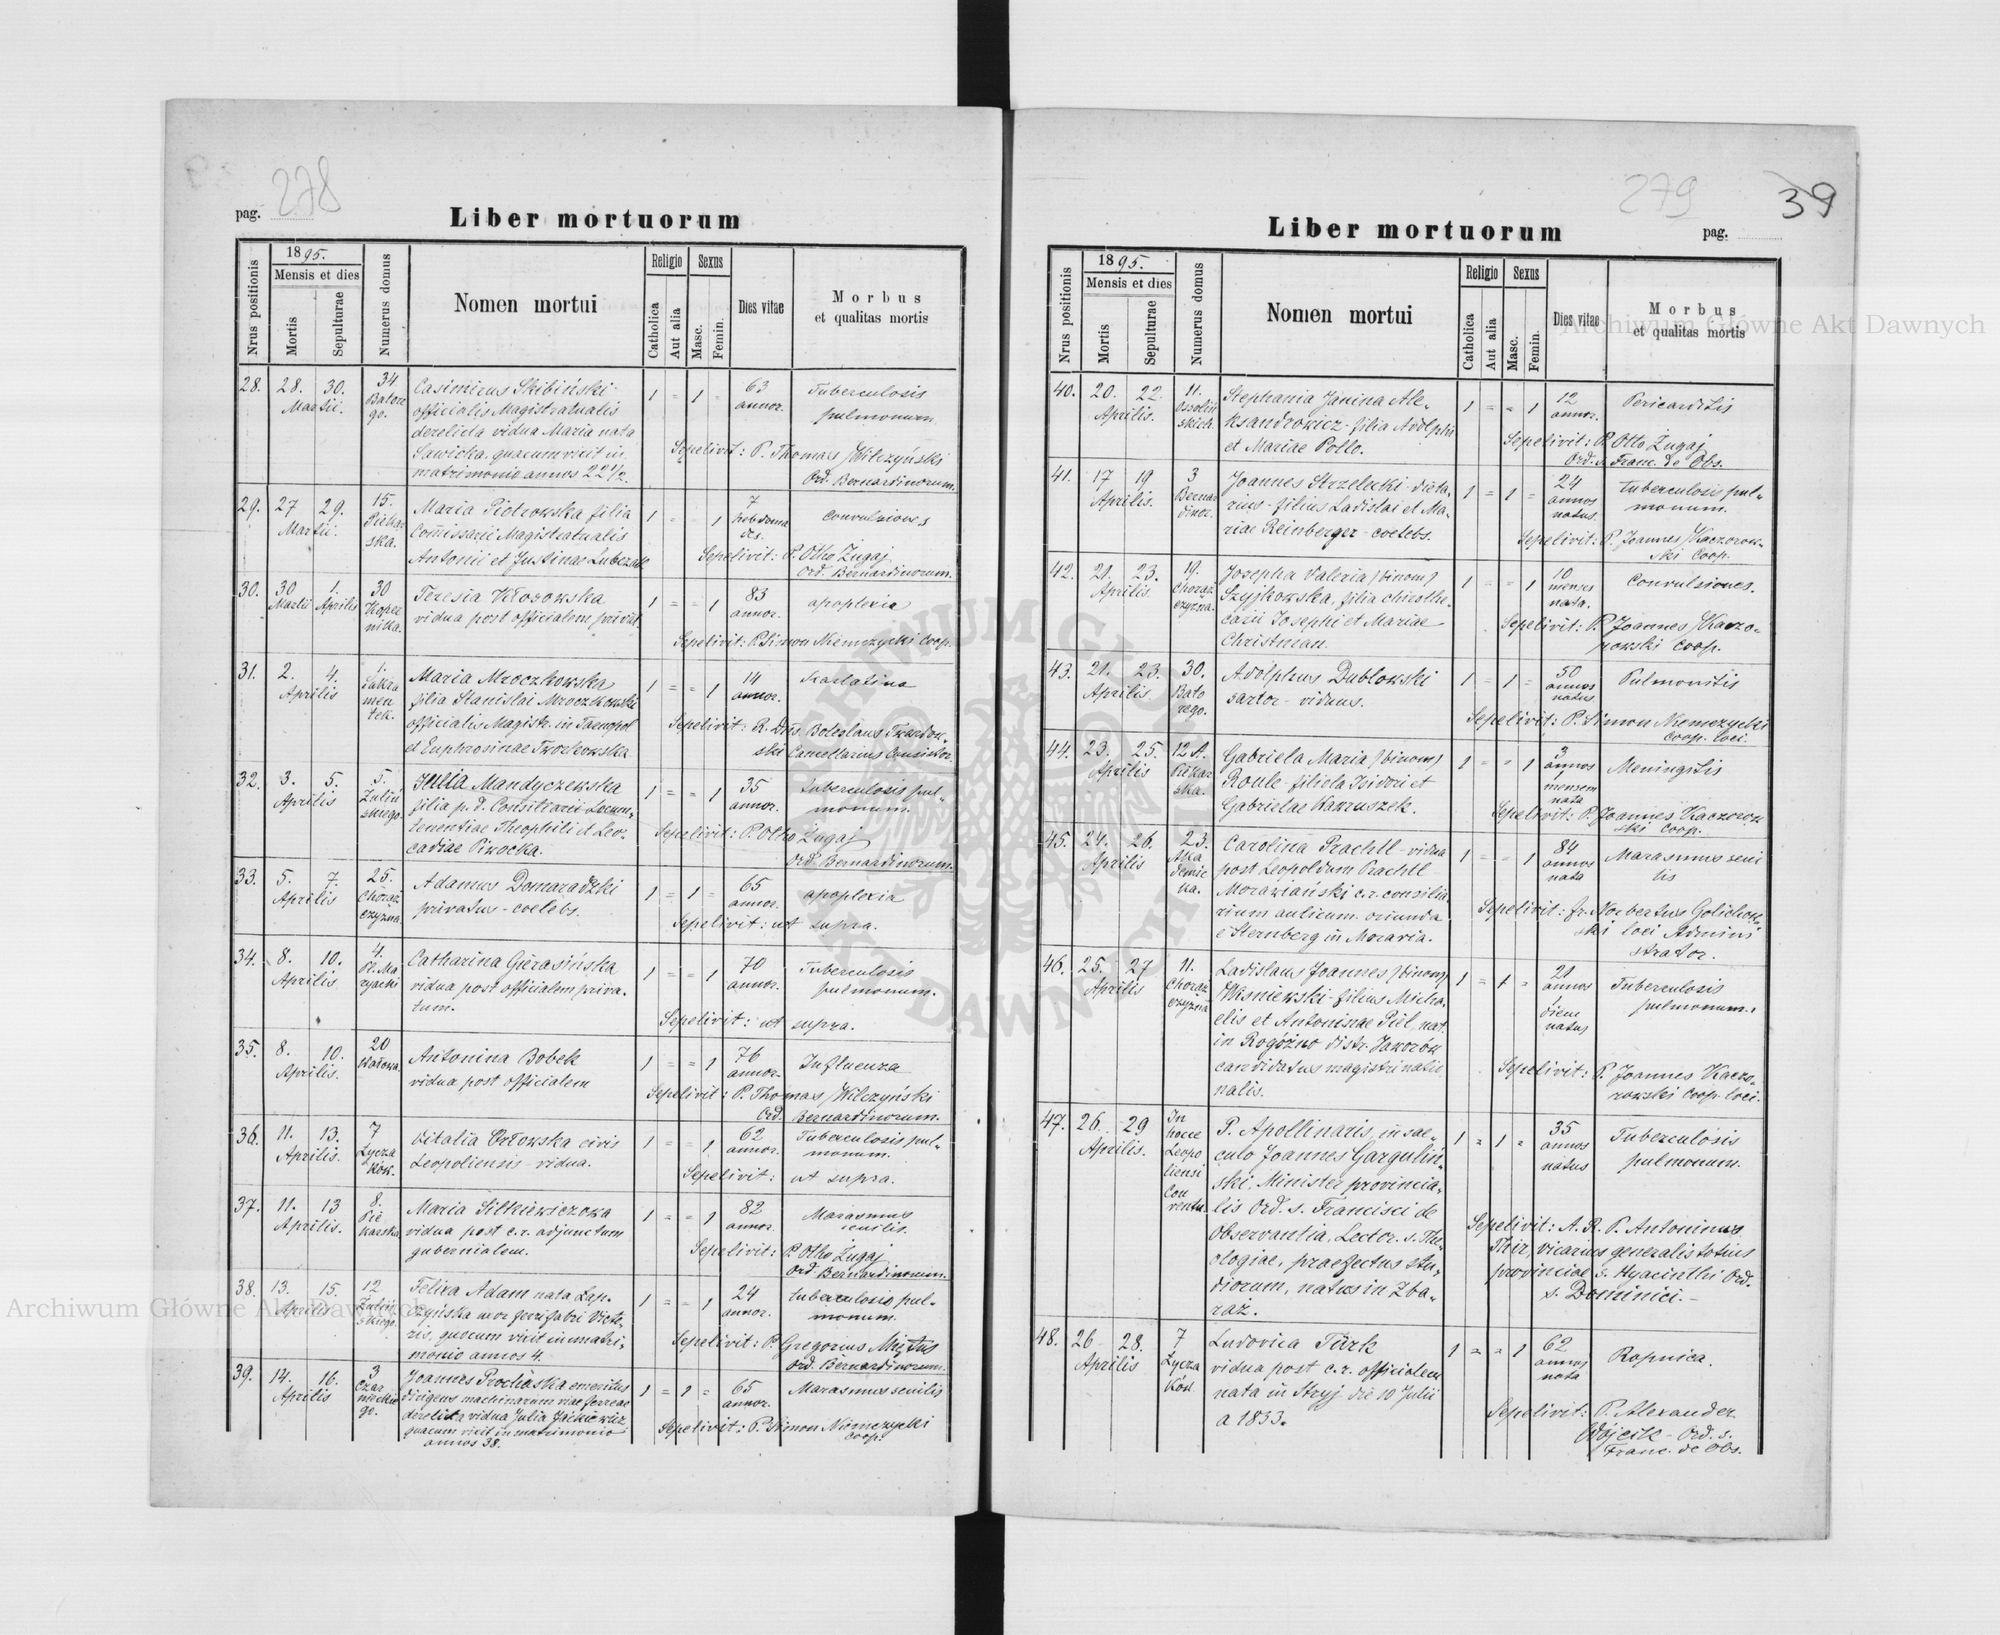 278
pag.
Liber mortuorum
Nrus positionis
1895.
Mensis et dies
Mortis
Sepulturae
Numerus domus
Nomen mortui
Religio
Catholica
Aut alia
Sexus
Masc.
Femin.
Dies vitae
Morbus
et qualitas mortis
28. 28. 30. Martii. 34 Batore-
go.
Casimirus Skibiński
officialis Magistratualis
derelicta vidua Maria nata
Sawicka, quacum vixit in
matrimonio annos 22 1/2.
1 = 1 =
63
annor.
Tuberculosis
pulmonum
Sepelivit: P. Thomas Wilczyński
Ord. Bernardinorum.
29. 27 29. Martii. 15.
Piekar-
ska.
Maria Piotrowska filia
Comissarii Magistratualis
Antonii et Justinae Lubczak
1 = 1
7
hebdoma
des.
Convulsiones
Sepelivit: P. Otto Żugaj
Ord. Bernardinorum.
30. 30 Martii 1. Aprilis 30
Koper
nika.
Teresia Kłosowska
vidua post officialem privat.
1 = = 1
83
annor.
apoplexia
Sepelivit: P. Simon Niemczycki Coop.
31. 2. 4. Aprilis 1.
Sakra
men
tek.
Maria Mroczkowska
filia Stanislai Mroczkowski
officialis Magistr. in Tarnopol
et Euphrosinae Tworkowska
1 = = 1
14
annor.
Scarlatina
Sepelivit: R. Dns Boleslaus Twardow-
ski Cancellarius Consistor.
32. 3. 5. Aprilis 5.
Zuliń
skiego
Julia Mandyczewska
filia p. d. Consiliarii Locum-
tenentiae Theophili et Leo-
cadiae Piwocka.
1 = = 1
35
annor.
tuberculosis pul-
monum.
Sepelivit: P. Otto Żugaj
Ord. Bernardinorum.
33. 5. 7. Aprilis 25.
Chorąż
czyzna
Adamus Domaradzki
privatus - coelebs.
1 = 1 =
65
annor.
apoplexia
Sepelivit: ut supra.
34. 8. 10. Aprilis 4.
Pl. Ma
ryacki
Catharina Gierasińska
vidua post officialem priva-
tum.
1 = = 1
70
annor.
Tuberculosis
pulmonum.
Sepelivit: ut supra.
35. 8. 10. Aprilis. 20
Wałowa
Antonina Bobek
vidua post officialem
1 = = 1
76
annor.
Influenza
Sepelivit: P. Thomas Wilczyński
Ord. Bernardinorum.
36. 11. 13. Aprilis. 7
Łycza
ków.
Vitalia Orłowska civis
Leopoliensis - vidua.
1 = = 1
62
annor.
Tuberculosis pul-
monum.
Sepelivit: ut supra.
37. 11. 13 Aprilis. 8.
Pie
karska
Maria Sitkiewiczowa
vidua post c.r. adjunctum
gubernialem.
1 = = 1
82
annor.
Marasmus
senilis.
Sepelivit: P. Otto Żugaj
Ord. Bernardinorum.
38. 13. 15. Aprilis 12.
Zuliń
skiego.
Felixa Adam nata Łap-
czyńska uxor ferrifabri Victo-
ris, quocum vixit in matri-
monio annos 4.
1 = = 1
24
annor.
tuberculosis pul-
monum.
Sepelivit: P. Gregorius Mixtus
Ord. Bernardinorum.
39. 14. 16. Aprilis 3
Czar
nieckie
go.
Joannes Prochaska emeritus
dirigens machinarum viae ferreae
derelicta vidua Julia Jackiewicz
quacum vixit in matrimonio
annos 38.
1 = 1 =
65
annor.
Marasmus senilis
Sepelivit: P. Simon Niemczycki
coop.
279
39
Liber mortuorum
pag.
Nrus positionis
1895.
Mensis et dies
Mortis
Sepulturae
Numerus domus
Nomen mortui
Religio
Catholica
Aut alia
Sexus
Masc.
Femin.
Dies vitae
Morbus
et qualitas mortis
40. 20. 22. Aprilis. 11.
Ossoliń
skich.
Stephania Janina Ale-
ksandrowicz - filia Adolphi
et Mariae Pollo.
1 = = 1
12
annor.
Pericarditis
Sepelivit: P. Otto Żugaj
Ord. s. Franc. de Obs.
41. 17 19 Aprilis. 3
Bernar
dinor.
Joannes Strzelecki - dieta-
rius - filius Ladislai et Ma-
riae Reinberger - coelebs.
1 = 1 =
24
annos
natus.
tuberculosis pul-
monum.
Sepelivit: P. Joannes Kaczorow-
ski Coop.
42. 21. 23. Aprilis 19.
Chorąż
czyzna.
Josepha Valeria (binom)
Szyjkowska, filia chirothe-
carii Josephi et Mariae
Christman.
1 = = 1
10
menses
nata.
Convulsiones.
Sepelivit: P. Joannes Kaczo-
rowski Coop.
43. 21. 23. Aprilis 30.
Bato
rego.
Adolphus Dublowski
sartor - viduus.
1 = 1 =
50
annos
natus
Pulmonitis
Sepelivit: P. Simon Niemczycki
Coop. loci.
44. 23. 25. Aprilis 12 A.
Piekar
ska.
Gabriela Maria (binom)
Roule - filiola Isidori et
Gabrielae Karruszek.
1 = = 1
3
annos
1
mensem
nata
Meningitis
Sepelivit: P. Joannes Kaczorow
ski Coop.
45. 24. 26. Aprilis 23.
Aka
demic
ka.
Carolina Prachtl - vidua
post Leopoldum Prachtl
Morawiański c.r. consilia
rium aulicum. oriunda
e Sternberg in Moravia.
1 = = 1
84
annos
nata
Marasmus seni
lis
Sepelivit: fr. Norbertus Golichow-
ski loci Admini
strator.
46. 25. 27 Aprilis 11.
Chorąż
czyzna
Ladislaus Joannes (binom)
Wisniewski - filius Micha-
elis et Antoninae Piel, nat.
in Rogóźno distr. Jaworów
candidatus magistri natio
nalis.
1 = 1 =
21
annos
1
diem
natus
Tuberculosis
pulmonum.
Sepelivit: P. Joannes Kaczo-
rowski Coop. loci.
47. 26. 29 Aprilis. In
hocce
Leopo
liensi
Con
ventu.
P. Apollinaris, in sae-
culo Joannes Gargulin-
ski, Minister provincia-
lis Ord. s. Francisci de
Observantia, Lector. s. The-
ologiae, praefectus stu-
diorum, natus in Zba-
raż.
1 = 1 =
35
annos
natus
Tuberculosis
pulmonum.
Sepelivit: A. R. P. Antoninus
Thir, vicarius generalis totius
provinciae s. Hyacinthi Ord.
s. Dominici. -
48. 26 28. Aprilis 7
Łycza
ków.
Ludovica Türk
vidua post c.r. officialem
nata in Stryj die 10 Julii
a 1833.
1 = = 1
62
annos
nata
Ropnica.
Sepelivit: P. Alexander
Wójcik - Ord. s.
Franc. de Obs.
Archiwum Główne Akt Dawnych
Archiwum Główne Akt Dawnych
ARCHIWUM GŁÓWNE AKT DAWNYCH